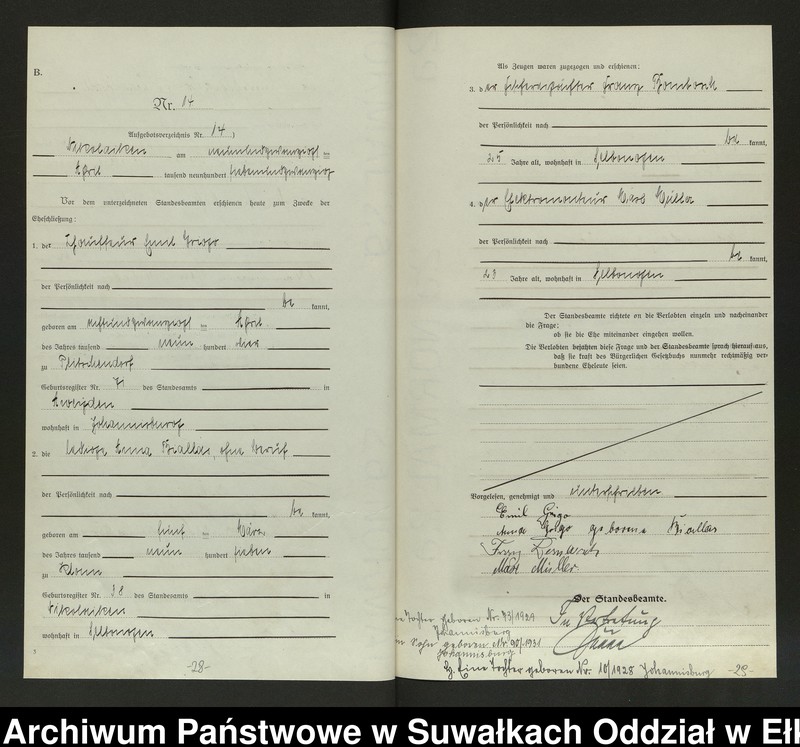 B.
Nr. 14
Aufgebotsverzeichnis Nr. 14
Nikolaiken am neunundzwanzigsten
April tausend neunhundert siebenundzwanzig
Vor dem unterzeichneten Standesbeamten erschienen heute zum Zwecke der
Eheschließung:
1. der Chauffeur Emil Grigo
der Persönlichkeit nach
be kannt,
geboren am achtundzwanzigsten April
des Jahres tausend neun hundert vier
zu
Geburtsregister Nr. 71 des Standesamts in
wohnhaft in Johannisburg
2. die ledige Anna Biallas, ohne Beruf
der Persönlichkeit nach
be kannt,
geboren am März
des Jahres tausend neun hundert sieben
zu
Geburtsregister Nr. 38 des Standesamts in
Nikolaiken
wohnhaft in Selbongen
-28-
Als Zeugen waren zugezogen und erschienen:
3. der Franz
der Persönlichkeit nach
be kannt,
Jahre alt, wohnhaft in Selbongen
4. der Elektromonteur Max Miller
der Persönlichkeit nach
be kannt,
23 Jahre alt, wohnhaft in Selbongen
Der Standesbeamte richtete an die Verlobten einzeln und nacheinander
die Frage:
ob sie die Ehe miteinander eingehen wollen.
Die Verlobten bejahten diese Frage und der Standesbeamte sprach hierauf aus,
daß sie kraft des Bürgerlichen Gesetzbuchs nunmehr rechtmäßig ver-
bundene Eheleute seien.
Vorgelesen, genehmigt und unterschrieben
Emil Grigo
Anna Grigo geborene Biallas
Franz
Max Miller
Der Standesbeamte.
In Vertretung
Tochter geboren Nr. 93/1929
Johannisburg
Sohn geboren Nr. 98/1931
Johannisburg
Eine Tochter geboren Nr. 10/1928 Johannisburg
-29-
Archiwum Państwowe w Suwałkach Oddział w Ełk